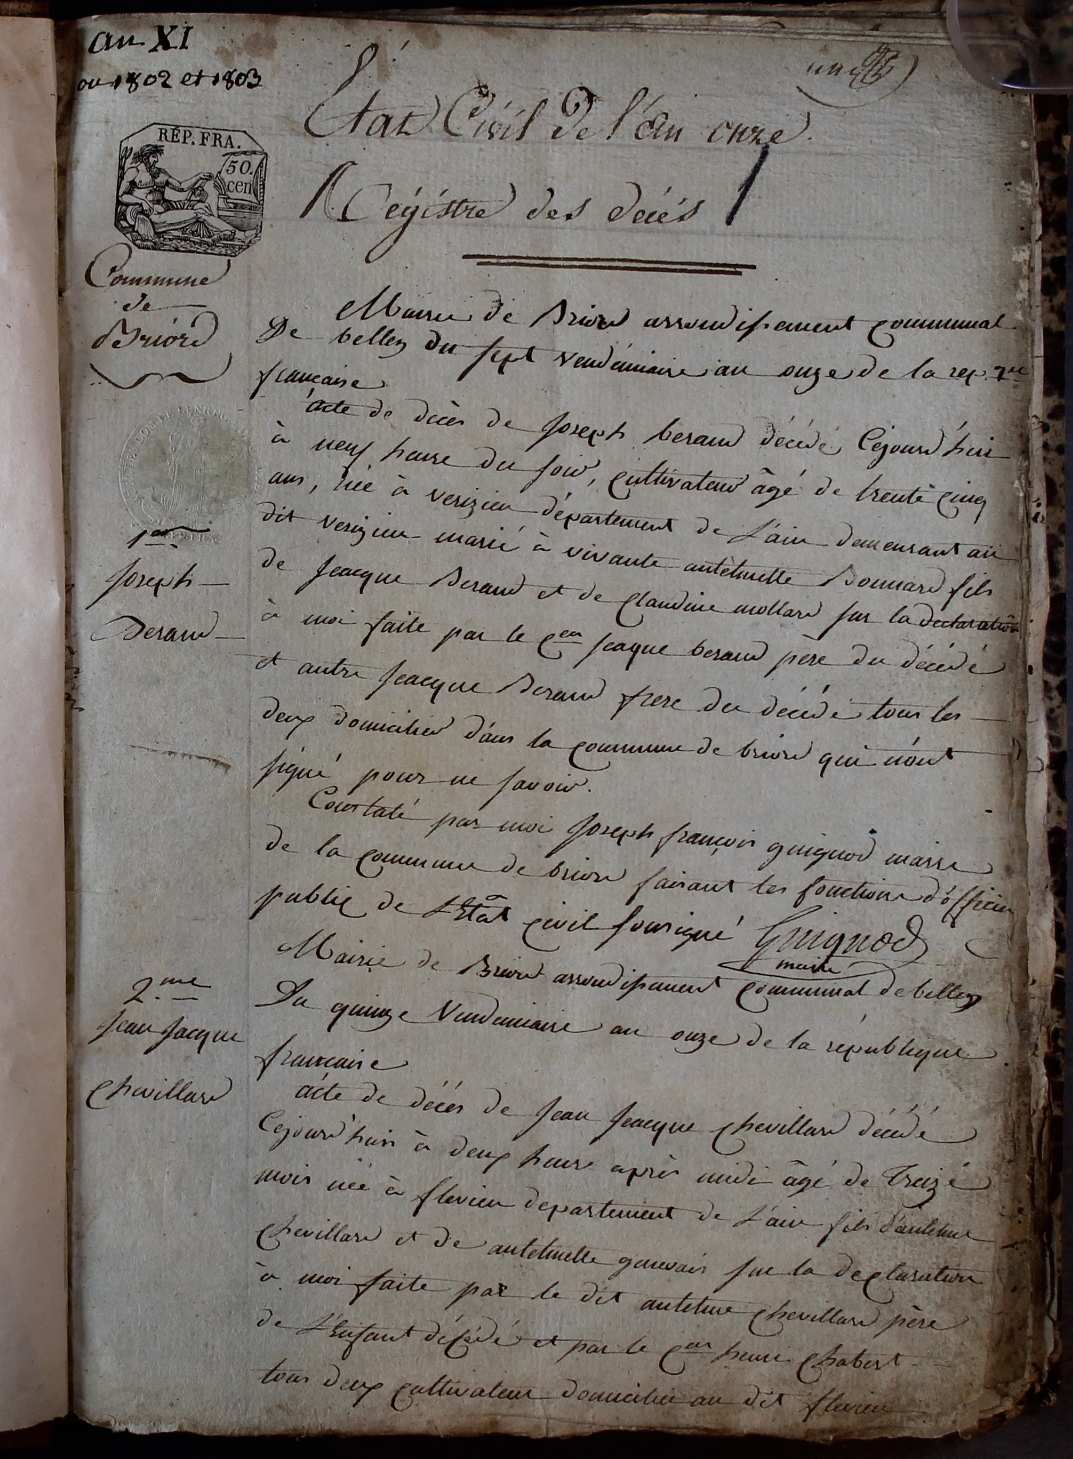 an XI
ou 1802 et 1803
Etat Civil de l'an onze
RÉP. FRA.
50.
cen
Régistre des décés
Commune
de
Briord
Mairie de Briord arrondissement communal
De belley du sept vendémiaire an onze de la rep. que
francaise
acte de décès de Joseph beraud décédé cejourd'hui
à neuf heure du soir, cultivateur âgé de trente cinq
ans, née à verizieu département de L'ain demeurant au
dit verizieu marié à vivante antelmette Bonnard fils
de Jeacque Beraud et de claudine mollard sur la declaration
à moi faite par le Cen Jeaque beraud père du décédé
et autre Jeacque Beraud frere du décédé tous les
deux domicilied dans la commune de briord qui n'ont
signé pour ne savoir.
1er
Joseph
Beraud
Constaté par moi Joseph françois guignod maire
de la commune de briord faisant les fonctions d'officier
public de L'Etat civil soussigné Guignod
maire
Mairie de Briord arrondissement communal de belley
Du quinze Vendemiaire an onze de la république
francaise
2.me
Jean Jacque
chevillard
acte de décés de Jean Jeacque chevillard décédé
cejourd'hui à deux heure après midi âgé de treize
mois née à flevieu departement de L'ain fils d'antelme
chevillard et de antelmette gauvais sur la declaration
à moi faite par le dit antelme chevillard père
de L'enfant décédé et par le Cen henri chabert
tous deux cultivateur domicilié au dit flevieu